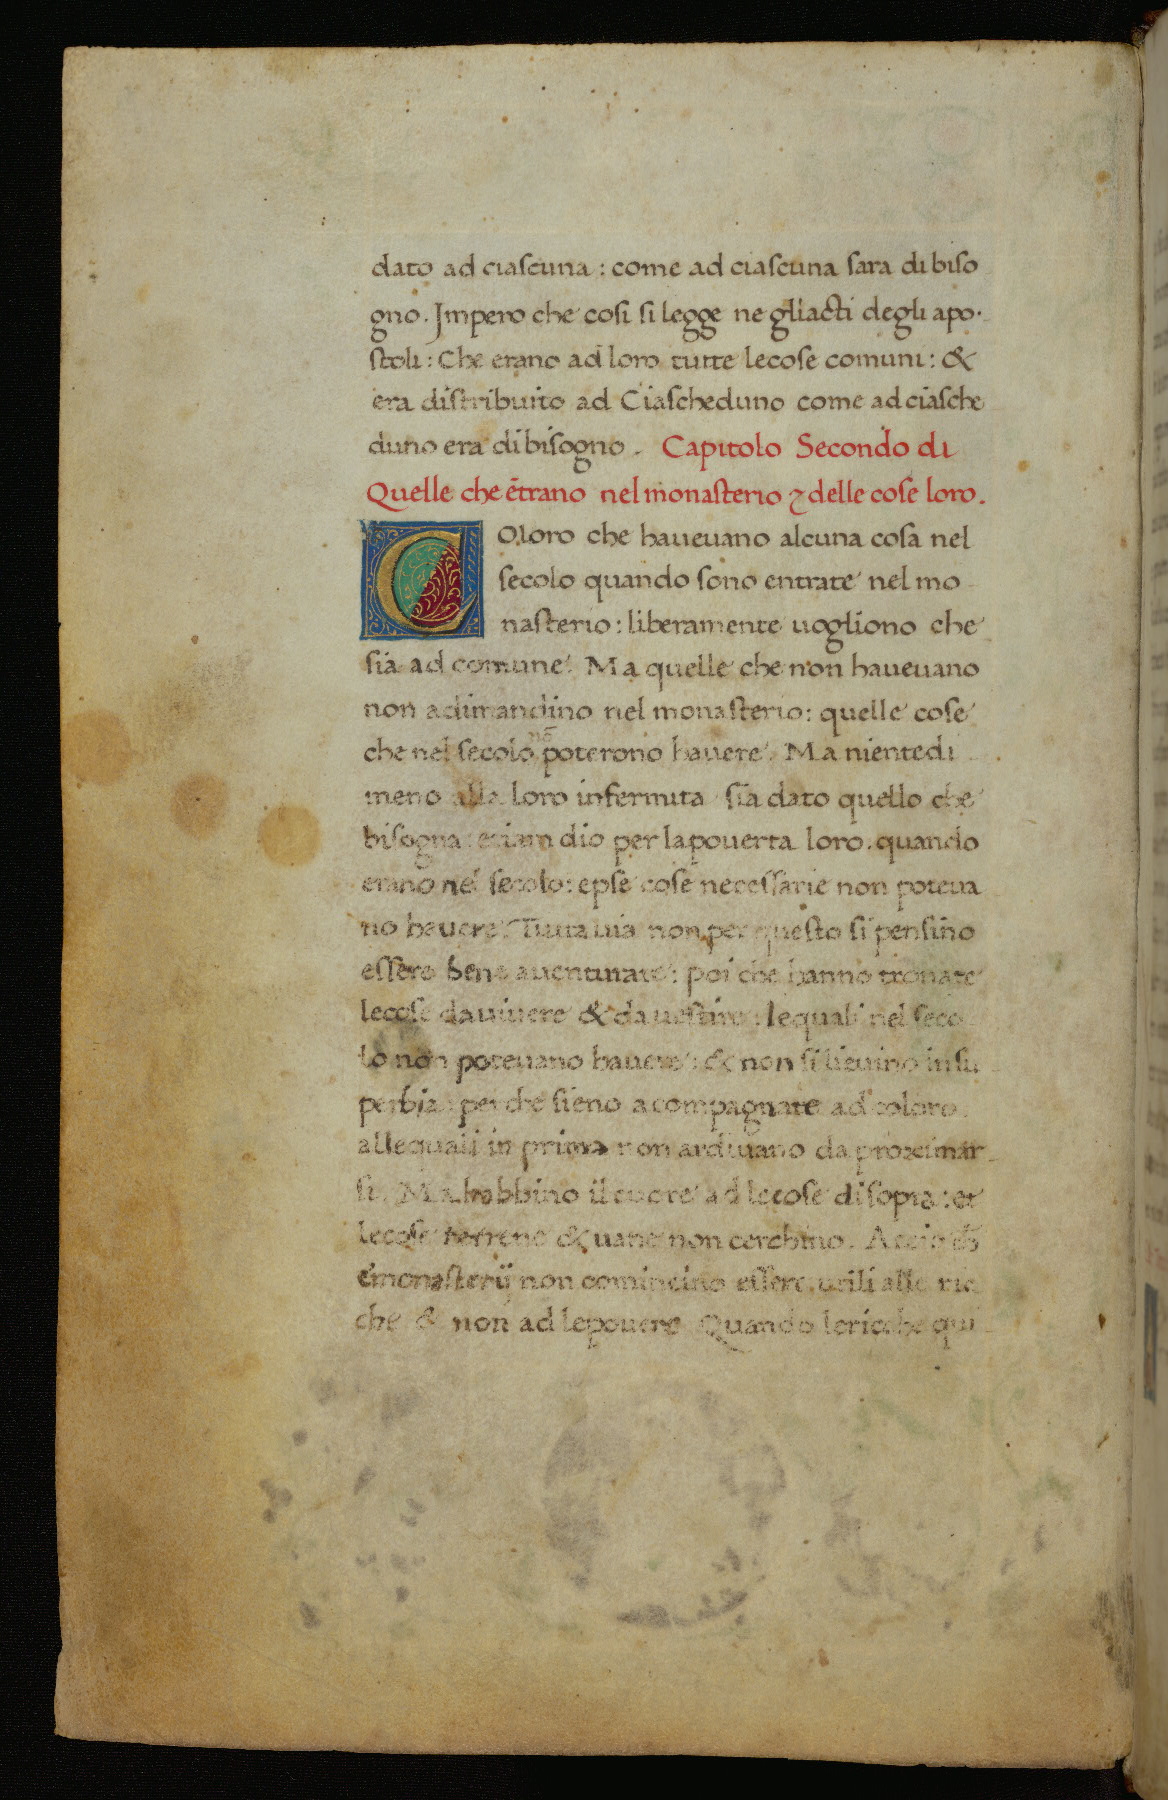 dato ad ciascuna : come ad ciascuna sara di biso
gno . Impero che cosi si legge ne gliacti degli apo·
stoli : Che erano ad loro tutte lecose comuni : &
era distribuito ad Ciascheduno come ad ciasche
duno era di bisogno . Capitolo Secondo di
Quelle che ētrano nel monasterio ⁊ delle cose loro .
COloro che haueuano alcuna cosa nel
secolo quando sono entrate nel mo
nasterio : liberamente uogliono che
sia ad comune . Ma quelle che non haueuano
non adimandino nel monasterio : quelle cose
che nel secolo nō poterono hauere . Ma nientedi
meno alla loro infermita sia dato quello che
bisogna : etiam dio per la pouerta loro . quando
erano nel secolo : epse cose necessarie non poteua
no hauere . Tutta uia non per questo si pensino
essere bene auenturate : poi che hanno trouate
lecose da uiuere & da uestire : lequali nel seco
lo non poteuano hauere : & non si lieuino in su
perbia : perche sieno acompagnate ad coloro
allequali in prima non ardiuano da proximar
si . Ma habbino il cuore ad lecose di sopra : et
lecose terrene & uane non cerchino . Accio chē
emonasterij non comincino essere utili alle ric
che & non ad lepouere Quando lericche qui